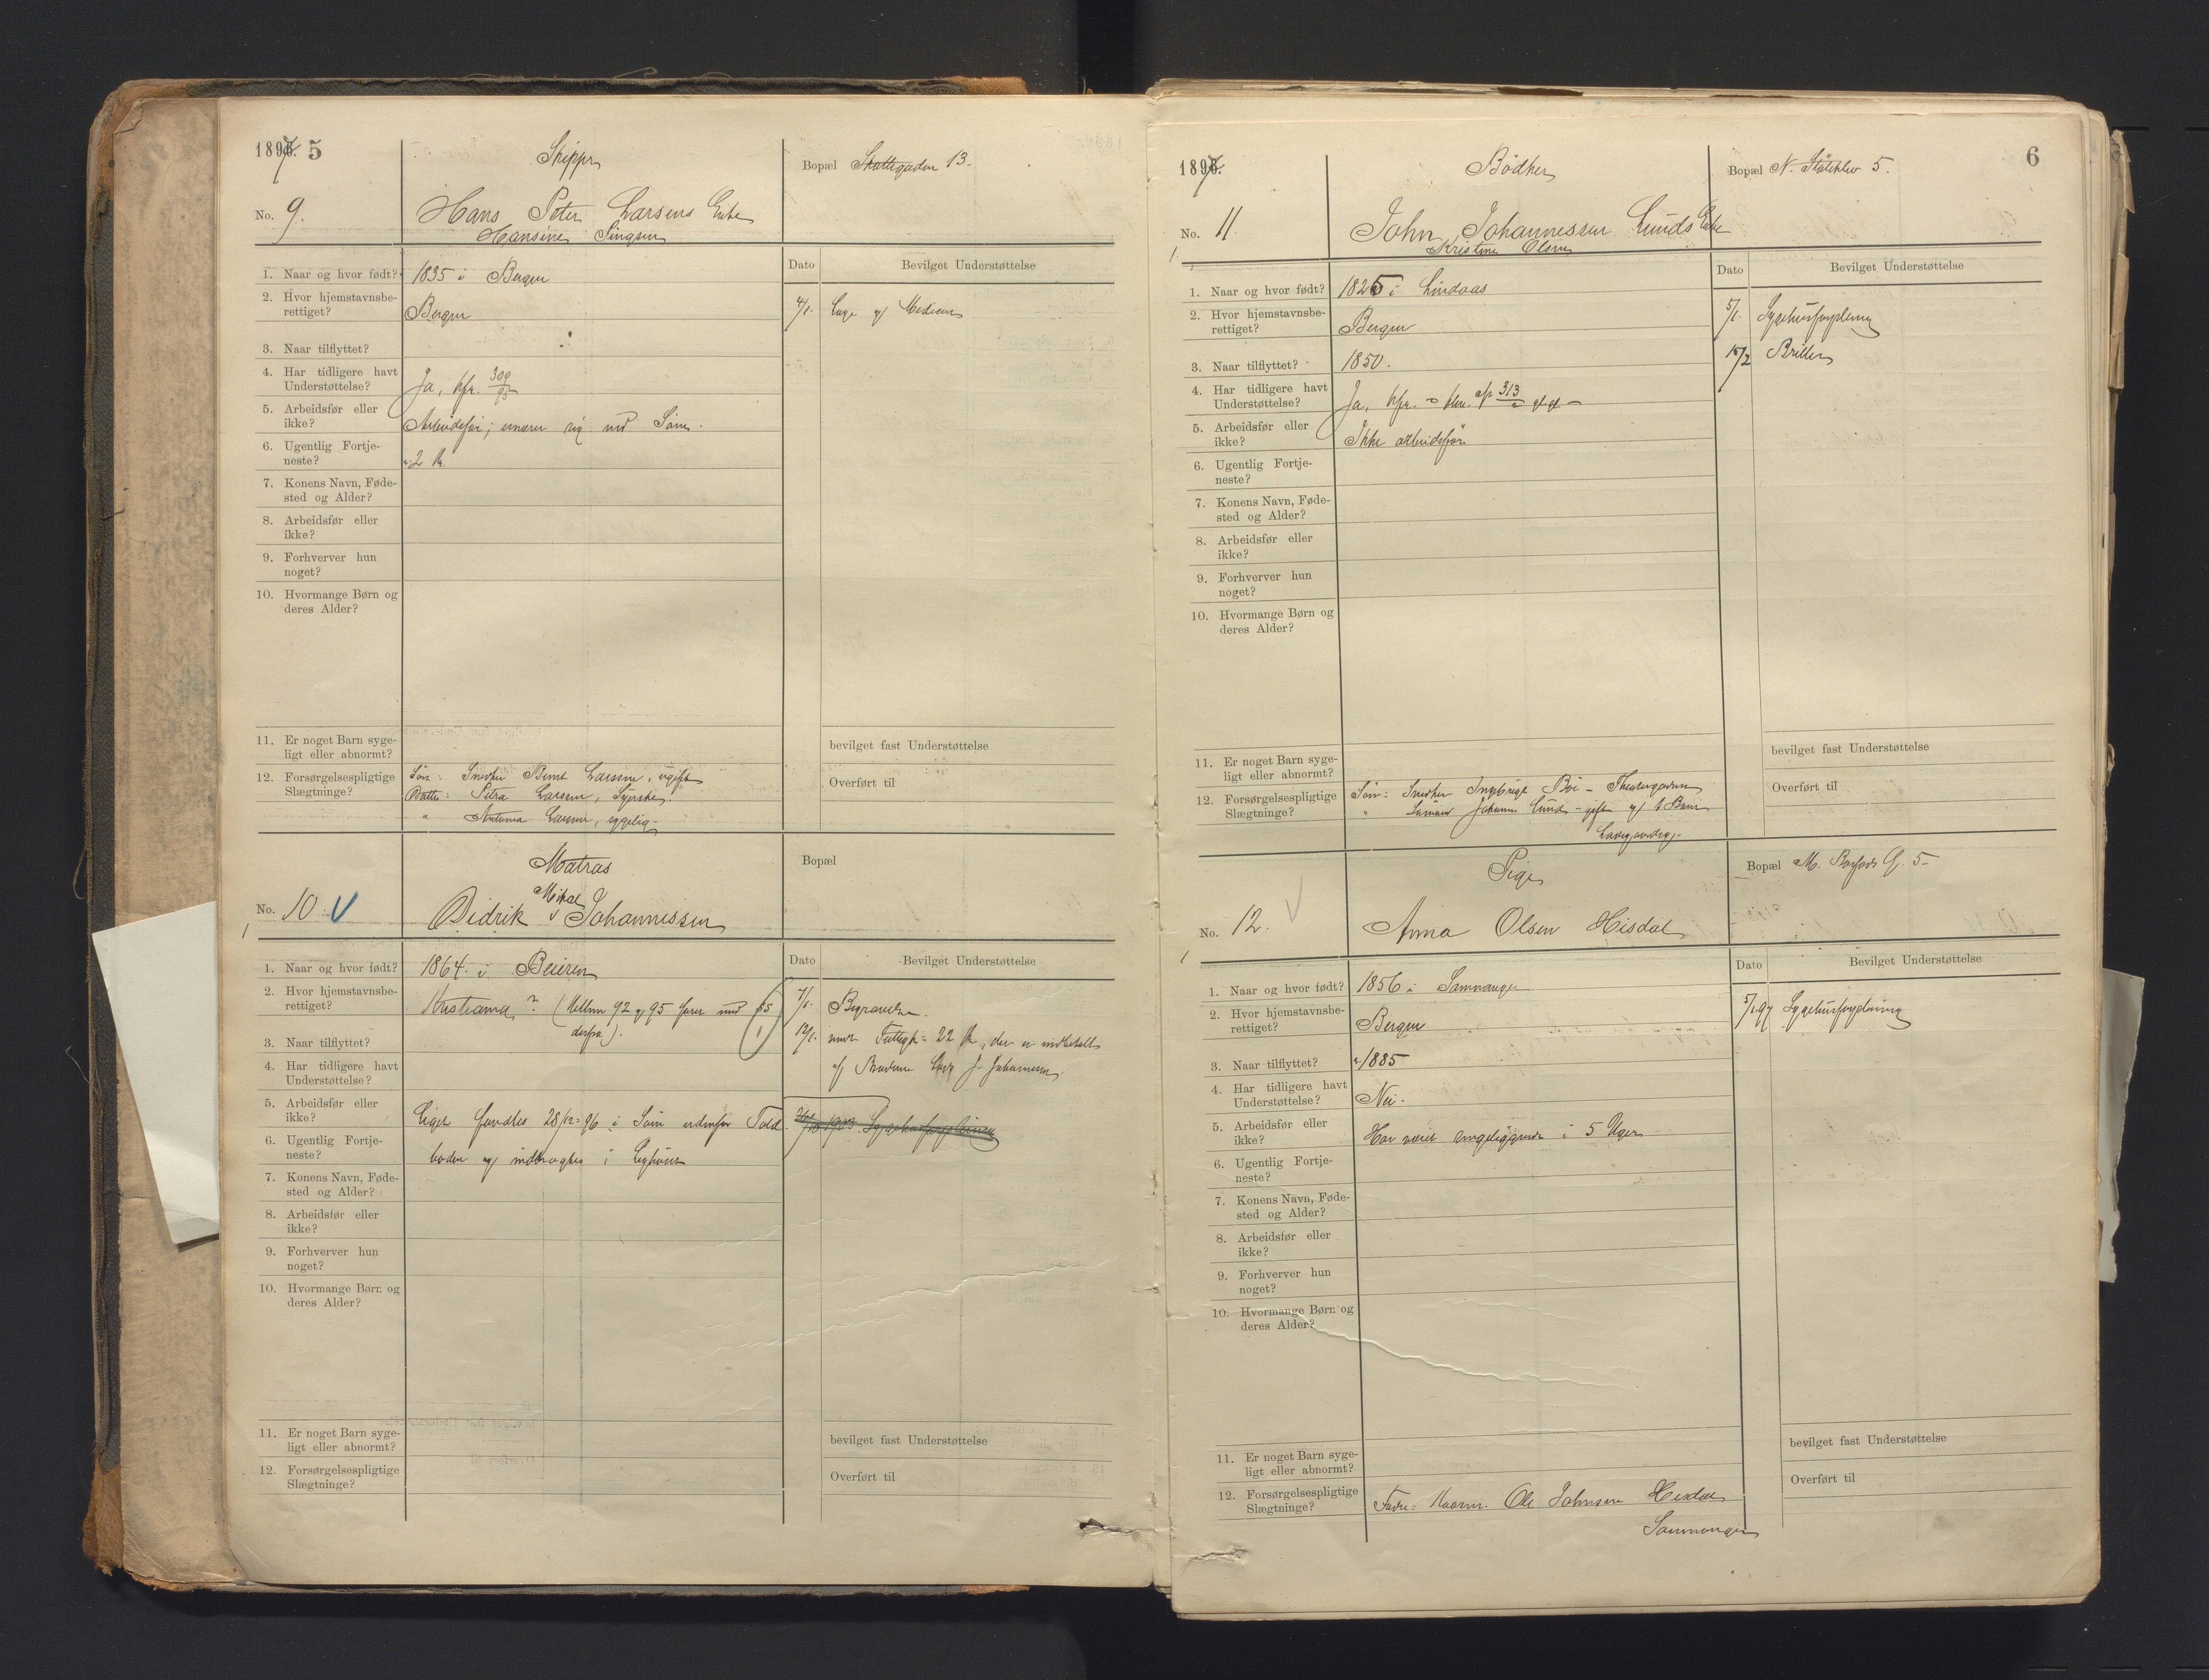 1897. 5
Skipper
Bopæl Skottegaden 13.
No. 9.
Hans Peter Larsens Enke
Hansine Singsen
Dato
Bevilget Understøttelse
1. Naar og hvor født? 1835 i Bergen
2. Hvor hjemstavnsbe-
rettiget? Bergen
4/1. Læge og Medicin
3. Naar tilflyttet?
4. Har tidligere havt
Understøttelse? Ja, kfr. 309/95
5. Arbeidsfør eller
ikke? Arbeidsfør; ernærer sig med Søm.
6. Ugentlig Fortje-
neste? 2 Kr.
7. Konens Navn, Føde-
sted og Alder?
8. Arbeidsfør eller
ikke?
9. Forhverver hun
noget?
10. Hvormange Børn og
deres Alder?
11. Er noget Barn syge-
ligt eller abnormt?
bevilget fast Understøttelse
12. Forsørgelsespligtige
Slægtninge?
Søn: Snedker Bernt Larsen, ugift
Datter: Petra Larsen, Syerske.
" Antona Larsen, sygelig.
Overført til
Matros
Bopæl
No. 10. V
Didrik Mikal Johannessen
Dato
Bevilget Understøttelse
1. Naar og hvor født? 1864 i Beieren
2. Hvor hjemstavnsbe-
rettiget? Kristiania? (Mellem 92 og 95 farer med
derfra).
7/1. Begravelse.
12/1. 22 Kr, der er indbetalt
af Broderen J. Johannesen.
3. Naar tilflyttet?
4. Har tidligere havt
Understøttelse?
5. Arbeidsfør eller
ikke?
Liget fandtes 28/12-96 i Søen udenfor Told-
boden og indbragtes i Lighuset
1903. Sygehusforpleining
6. Ugentlig Fortje-
neste?
7. Konens Navn, Føde-
sted og Alder?
8. Arbeidsfør eller
ikke?
9. Forhverver hun
noget?
10. Hvormange Børn og
deres Alder?
11. Er noget Barn syge-
ligt eller abnormt?
bevilget fast Understøttelse
12. Forsørgelsespligtige
Slægtninge?
Overført til
1897. 6
Bødker
Bopæl N. Støleklev 5.
No. 11.
John Johannessen Lunds Enke
Kristine Olsen
Dato
Bevilget Understøttelse
1. Naar og hvor født? 1825 i Lindaas
2. Hvor hjemstavnsbe-
rettiget? Bergen
5/1. Sygehusforpleining
15/2 Briller
3. Naar tilflyttet? 1850.
4. Har tidligere havt
Understøttelse? Ja, kfr. 313
5. Arbeidsfør eller
ikke? Ikke arbeidsfør
6. Ugentlig Fortje-
neste?
7. Konens Navn, Føde-
sted og Alder?
8. Arbeidsfør eller
ikke?
9. Forhverver hun
noget?
10. Hvormange Børn og
deres Alder?
11. Er noget Barn syge-
ligt eller abnormt?
bevilget fast Understøttelse
12. Forsørgelsespligtige
Slægtninge?
Søn: Snedker Ingebrigt Böe - Theatergaden
" Sømand Johann Lund - gift og 1 Barn
Overført til
Pige
Bopæl 5
No. 12. V
Anna Olsen Hisdal
Dato
Bevilget Understøttelse
1. Naar og hvor født? 1856 i Samnanger
2. Hvor hjemstavnsbe-
rettiget? Bergen
5/1.97 Sygehusforpleining
3. Naar tilflyttet? 1885
4. Har tidligere havt
Understøttelse? Nei.
5. Arbeidsfør eller
ikke? Har været sengeliggende i 5 Uger
6. Ugentlig Fortje-
neste?
7. Konens Navn, Føde-
sted og Alder?
8. Arbeidsfør eller
ikke?
9. Forhverver hun
noget?
10. Hvormange Børn og
deres Alder?
11. Er noget Barn syge-
ligt eller abnormt?
bevilget fast Understøttelse
12. Forsørgelsespligtige
Slægtninge?
Fader: Kaarm. Ole Johnsen Hisdal
Samnanger
Overført til